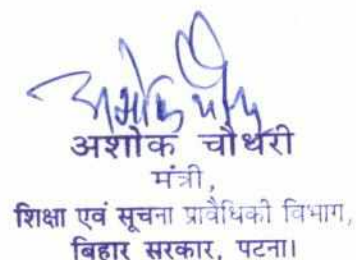 अशोक चौधरी
मंत्री,
शिक्षा एवं सूचना प्रावैधिकी विभाग,
बिहार सरकार, पटना।